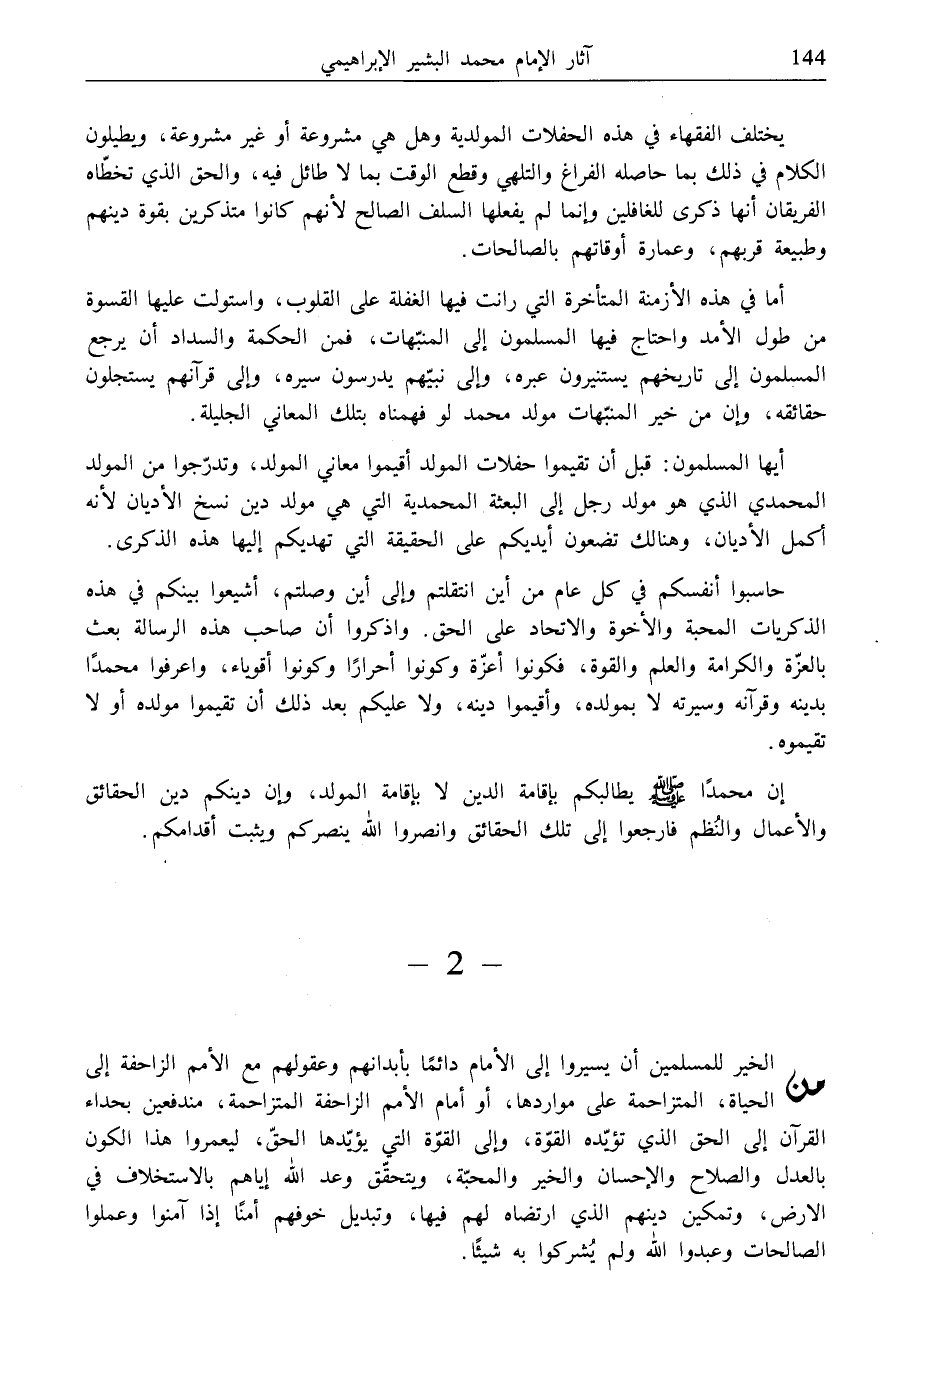 144
آثار الإمام محمد البشير الإبراهيمي
يختلف الفقهاء في هذه الحفلات المولدية وهل هي مشروعة أو غير مشروعة، ويطيلون
الكلام في ذلك بما حاصله الفراغ والتلهي وقطع الوقت بما لا طائل فيه، والحق الذي تخطّاه
الفريقان أنها ذكرى للغافلين وإنما لم يفعلها السلف الصالح لأنهم كانوا متذكرين بقوة دينهم
وطبيعة قربهم، وعمارة أوقاتهم بالصالحات.
أما في هذه الأزمنة المتأخرة التي رانت فيها الغفلة على القلوب، واستولت عليها القسوة
من طول الأمد واحتاج فيها المسلمون إلى المنبّهات، فمن الحكمة والسداد أن يرجع
المسلمون إلى تاريخهم يستنيرون عبره، وإلى نبيّهم يدرسون سيره، وإلى قرآنهم يستجلون
حقائقه، وإن من خير المنبّهات مولد محمد لو فهمناه بتلك المعاني الجليلة.
أيها المسلمون: قبل أن تقيموا حفلات المولد أقيموا معاني المولد، وتدرّجوا من المولد
المحمدي الذي هو مولد رجل إلى البعثة المحمدية التي هي مولد دين نسخ الأديان لأنه
أكمل الأديان، وهنالك تضعون أيديكم على الحقيقة التي تهديكم إليها هذه الذكرى.
حاسبوا أنفسكم في كل عام من أين انتقلتم وإلى أين وصلتم، أشيعوا بينكم في هذه
الذكريات المحبة والأخوة والاتحاد على الحق. واذكروا أن صاحب هذه الرسالة بعث
بالعزّة والكرامة والعلم والقوة، فكونوا أعزّة وكونوا أحرارًا وكونوا أقوياء، واعرفوا محمدًا
بدينه وقرآنه وسيرته لا بمولده، وأقيموا دينه، ولا عليكم بعد ذلك أن تقيموا مولده أو لا
تقيموه.
إن محمدًا ﷺ يطالبكم بإقامة الدين لا بإقامة المولد، وإن دينكم دين الحقائق
والأعمال والنُظم فارجعوا إلى تلك الحقائق وانصروا الله ينصركم ويثبت أقدامكم.
– 2 –
من الخير للمسلمين أن يسيروا إلى الأمام دائمًا بأبدانهم وعقولهم مع الأمم الزاحفة إلى
الحياة، المتزاحمة على مواردها، أو أمام الأمم الزاحفة المتزاحمة، مندفعين بحداء
القرآن إلى الحق الذي تؤيّده القوّة، وإلى القوّة التي يؤيّدها الحقّ، ليعمروا هذا الكون
بالعدل والصلاح والإحسان والخير والمحبّة، ويتحقّق وعد الله إياهم بالاستخلاف في
الارض، وتمكين دينهم الذي ارتضاه لهم فيها، وتبديل خوفهم أمنًا إذا آمنوا وعملوا
الصالحات وعبدوا الله ولم يُشركوا به شيئًا.